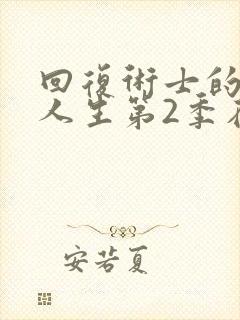 回復術士的
人生第2季
安若夏